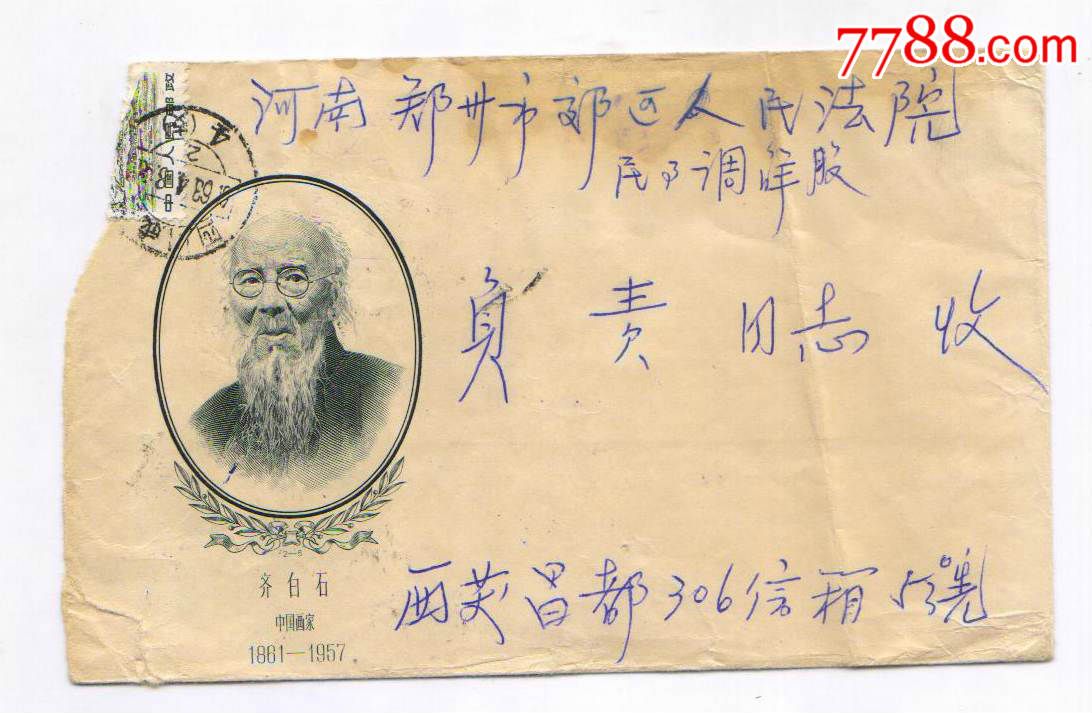 7788.com
中国人民邮政
河南郑州市郊区人民法院
民事调解股
负责同志收
2—8
齐白石
中国画家
1861—1957
西藏昌都306信箱